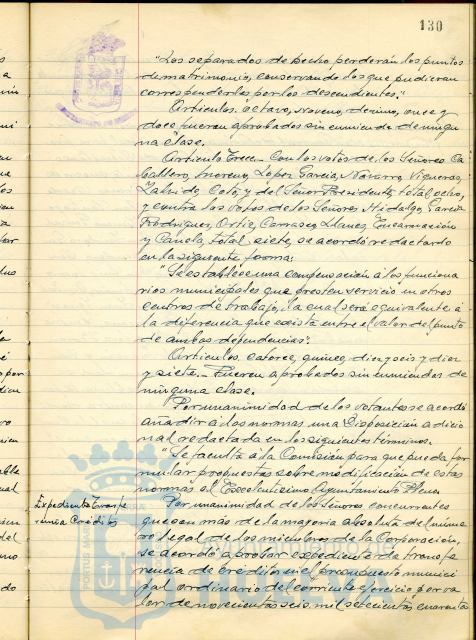 130
"Los separados de hecho, perderán los puntos
de matrimonio, conservando los que pudieran
corresponderles por los descendientes."
Artículos octavo, noveno, décimo, once y
doce fueron aprobados sin enmienda de ningu
na clase.
Artículo Trece.- Con los votos de los Señores Ca
ballero, Moreno, López García, Navarro, Vigueras,
y del Señor Presidente, total ocho,
y contra los votos de los Señores Hidalgo, García
Rodríguez, Ortiz, Carrasco, Llanes, Encarnación
y Canela, total siete, se acordó redactarlo
en la siguiente forma:
"Se establece una compensación a los funciona
rios municipales que presten servicio en otros
centros de trabajo, la cual será equivalente a
la diferencia que exista entre el valor del punto
de ambas dependencias".
Artículos catorce, quince, diez y seis y diez
y siete.- Fueron aprobados sin enmiendas de
ninguna clase.
Por unanimidad de los votantes se acordó
añadir a las normas una Disposición adicio
nal redactada en los siguientes términos.
"Se faculta a la Comisión para que pueda for
mular propuestas sobre modificación de estas
normas al Excelentísimo Ayuntamiento Pleno
Expediente Transfe
rencia Créditos
Por unanimidad de los Señores concurrentes
que son más de la mayoría absoluta del núme
ro legal de los miembros de la Corporación,
se acordó aprobar expediente de transfe
rencia de crédito en el presupuesto munici
pal ordinario del corriente ejercicio por va
lor de novecientos seis mil setecientas cuarenta